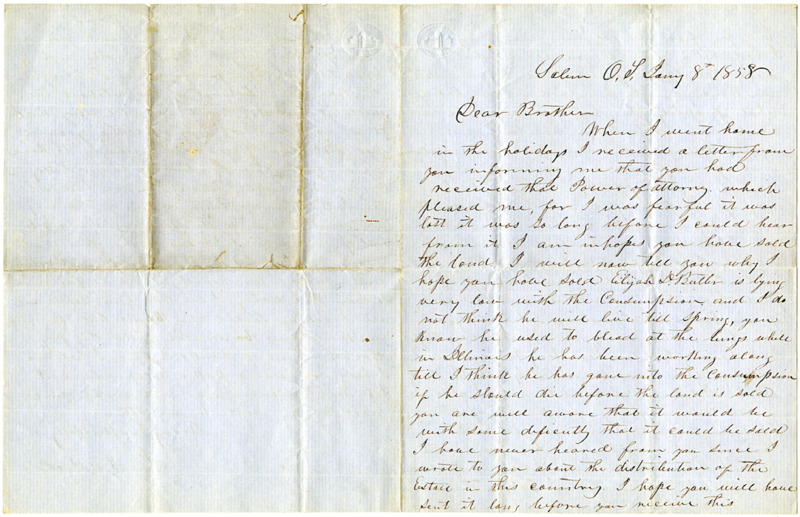 Salem O.T. Jany 8th 1858
Dear Brother
When I went home
in the holidays I received a letter from
you informing me that you had
received that Power of attorny. which
pleased me, for I was fearful it was
lost it was so long before I could hear
from it I am inhopes you have sold
the land. I will now tell you why I
hope you have sold Elijah D. Butler is lying
very low with the Consumpsion and I do
not think he will live till spring, you
know he used to blead at the lungs while
in Illinois he has been working along
till I think he has gone into the Consumpsion
if he should die before the land is sold
you are well aware that it would be
with some dificulty that it could be sold
I have never heared from you since I
wrote to you about the distribution of the
Estate in this country I hope you will have
sent it long before you receive this